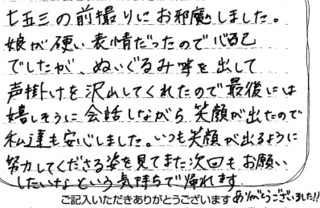 七五三の前撮りにお邪魔しました。
娘が硬い表情だったので心配
でしたが、ぬいぐるみ等を出して
声掛けを沢山してくれたので最後には
嬉しそうに会話しながら笑顔が出たので
私達も安心しました。いつも笑顔が出るように
努力してくださる姿を見てまた次回もお願い
したいなという気持ちで帰れます。
ご記入いただきありがとうございます ありがとうございました!!